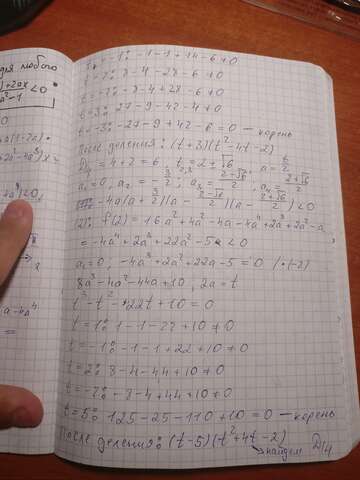 для любого
t=-1: -1-1+14-6≠0
t=2: 8-4-28-6≠0
t=-2: -8-4+28-6≠0
t=3: 27-9-42-6≠0
t=-3: -27-9+42-6=0 — корень
После деления: (t+3)(t²-4t-2)
=4+2=6, t=2±√6, a=t/2
a₁=0, a₂=-3/2, a₃=(2+√6)/2, a₄=(2-√6)/2
-4a(a+3/2)(a-(2+√6)/2)(a-(2-√6)/2)<0
(2): f(2)=16a²+4a²-4a-4a⁴+2a³+2a²-a
=-4a⁴+2a³+22a²-5a<0
a₁=0, -4a³+2a²+22a-5=0 |·(-2)
8a³-4a²-44a+10, 2a=t
t³-t²-22t+10=0
t=1: 1-1-22+10≠0
t=-1: -1-1+22+10≠0
t=2: 8-4-44+10≠0
t=-2: -8-4+44+10≠0
t=5: 125-25-110+10=0 — корень
После деления: (t-5)(t²+4t-2)
найдем D/4